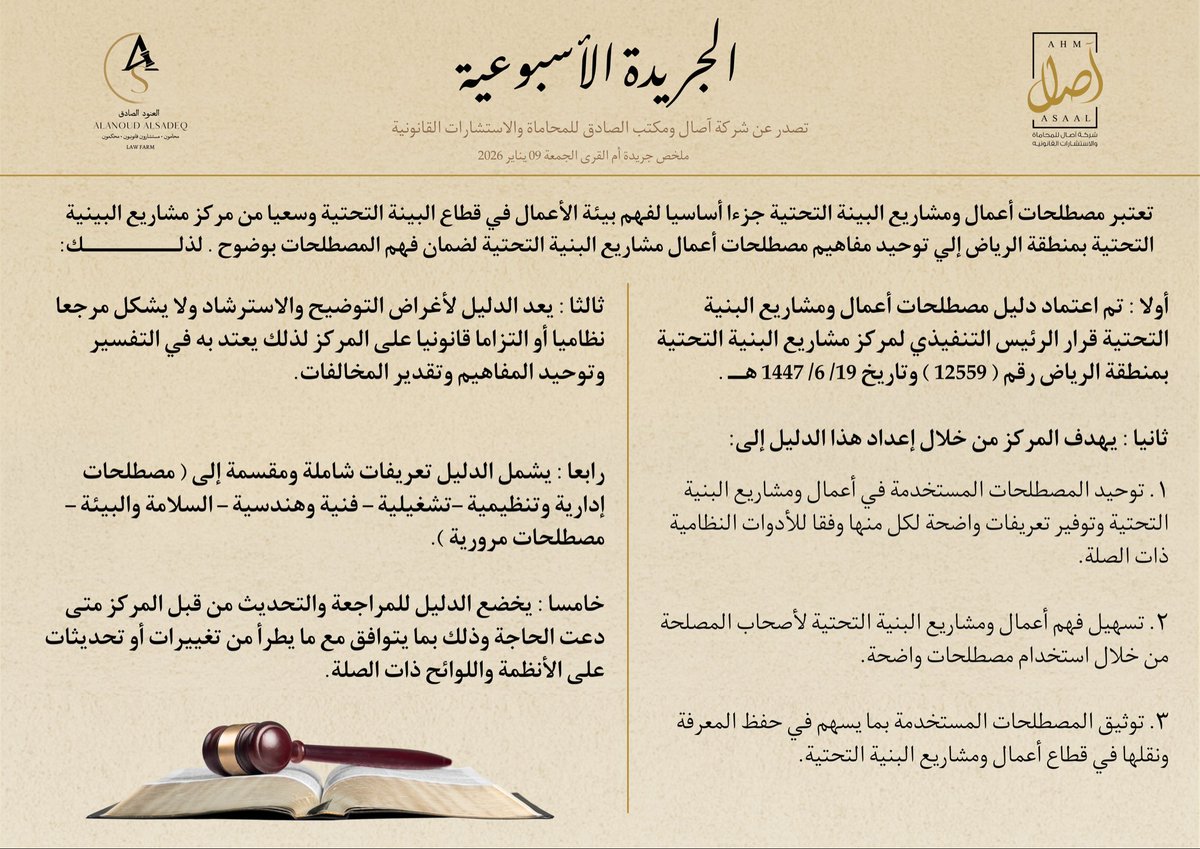 الجريدة الأسبوعية
تصدر عن شركة آصال ومكتب الصادق للمحاماة والاستشارات القانونية
ملخص جريدة أم القرى الجمعة 09 يناير 2026
AHM
آصال
ASAAL
شركة آصال للمحاماة
والاستشارات القانونية
AS
العنود الصادق
ALANOUD ALSADEQ
محامون • مستشارون قانونيون • محكمون
LAW FARM
تعتبر مصطلحات أعمال ومشاريع البينة التحتية جزءا أساسيا لفهم بيئة الأعمال في قطاع البينة التحتية وسعيا من مركز مشاريع البينية
التحتية بمنطقة الرياض إلي توحيد مفاهيم مصطلحات أعمال مشاريع البنية التحتية لضمان فهم المصطلحات بوضوح . لذلـــــــــــك:
أولا : تم اعتماد دليل مصطلحات أعمال ومشاريع البنية
التحتية قرار الرئيس التنفيذي لمركز مشاريع البنية التحتية
بمنطقة الرياض رقم ( 12559 ) وتاريخ 19/ 6/ 1447 هــ .
ثانيا : يهدف المركز من خلال إعداد هذا الدليل إلى:
١. توحيد المصطلحات المستخدمة في أعمال ومشاريع البنية
التحتية وتوفير تعريفات واضحة لكل منها وفقا للأدوات النظامية
ذات الصلة.
٢. تسهيل فهم أعمال ومشاريع البنية التحتية لأصحاب المصلحة
من خلال استخدام مصطلحات واضحة.
٣. توثيق المصطلحات المستخدمة بما يسهم في حفظ المعرفة
ونقلها في قطاع أعمال ومشاريع البنية التحتية.
ثالثا : يعد الدليل لأغراض التوضيح والاسترشاد ولا يشكل مرجعا
نظاميا أو التزاما قانونيا على المركز لذلك يعتد به في التفسير
وتوحيد المفاهيم وتقدير المخالفات.
رابعا : يشمل الدليل تعريفات شاملة ومقسمة إلى ( مصطلحات
إدارية وتنظيمية –تشغيلية – فنية وهندسية – السلامة والبيئة –
مصطلحات مرورية ).
خامسا : يخضع الدليل للمراجعة والتحديث من قبل المركز متى
دعت الحاجة وذلك بما يتوافق مع ما يطرأ من تغييرات أو تحديثات
على الأنظمة واللوائح ذات الصلة.